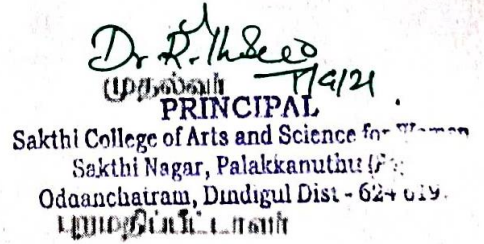 Dr R.
முதல்வர்
PRINCIPAL
Sakthi College of Arts and Science for Women
Sakthi Nagar, Palakkanuthu
Oddanchatram, Dindigul Dist - 624 619.